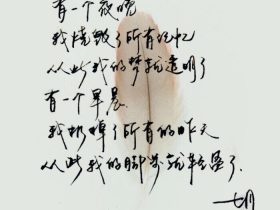 有一个夜晚
我烧毁了所有记忆
从此我的梦就透明了
有一个早晨
我扔掉了所有的昨天
从此我的脚步就轻盈了
七月